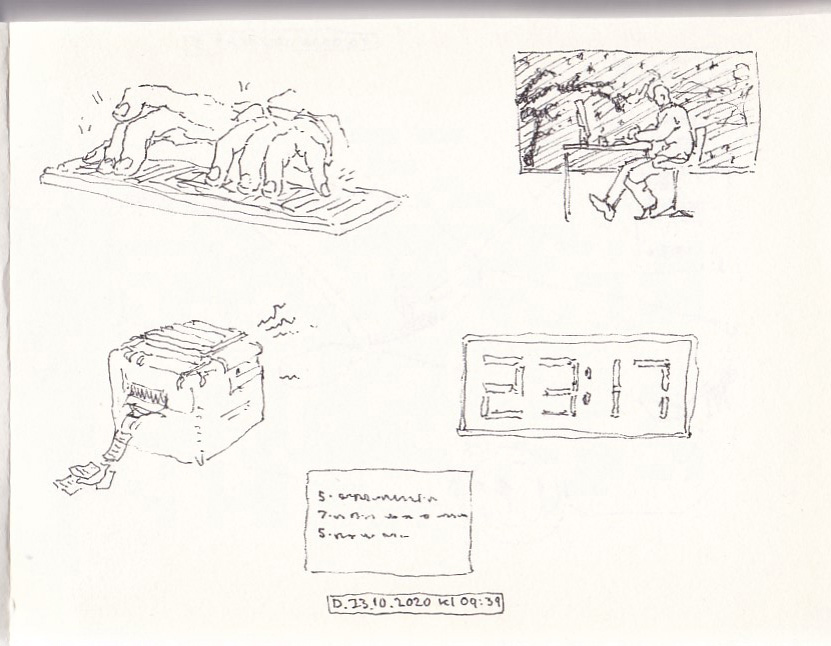 23:17
5.
7.
5.
D.23.10.2020 Kl 09:39